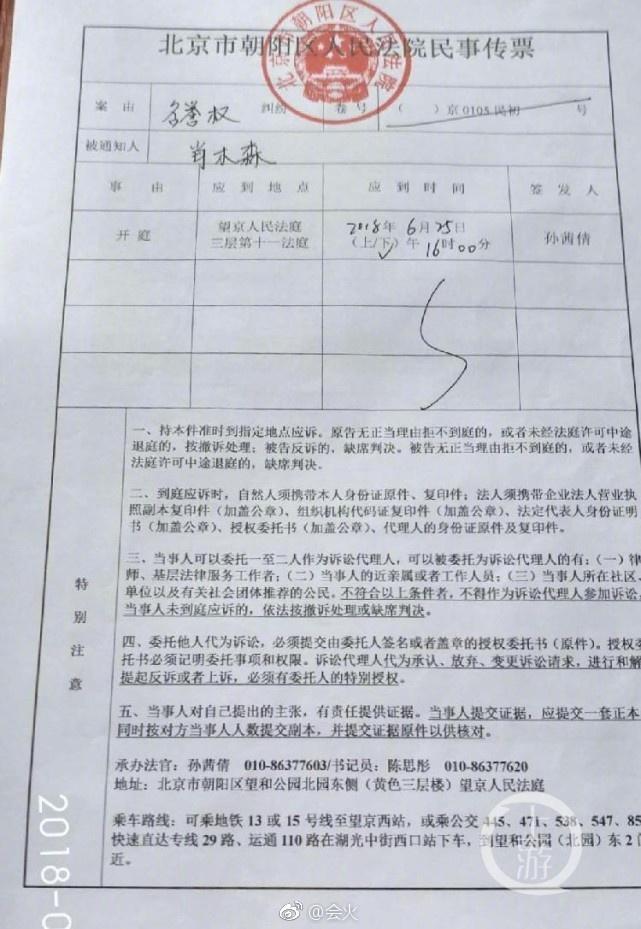 北京市朝阳区人民法院民事传票
案由 名誉权 纠纷 卷号 （ ）京0105民初 号
被通知人 肖木森
事由 应到地点 应到时间 签发人
开庭 望京人民法庭 2018年6月25日 孙茜倩
三层第十一法庭 （上/下）午16时00分
特别注意
一、持本件准时到指定地点应诉。原告无正当理由拒不到庭的，或者未经法庭许可中途
退庭的，按撤诉处理；被告反诉的，缺席判决。被告无正当理由拒不到庭的，或者未经
法庭许可中途退庭的，缺席判决。
二、到庭应诉时，自然人须携带本人身份证原件、复印件；法人须携带企业法人营业执
照副本复印件（加盖公章）、组织机构代码证复印件（加盖公章）、法定代表人身份证明
书（加盖公章）、授权委托书（加盖公章）、代理人的身份证原件及复印件。
三、当事人可以委托一至二人作为诉讼代理人，可以被委托为诉讼代理人的有：（一）律
师、基层法律服务工作者；（二）当事人的近亲属或者工作人员；（三）当事人所在社区、
单位以及有关社会团体推荐的公民。不符合以上条件者，不得作为诉讼代理人参加诉讼，
当事人未到庭应诉的，依法按撤诉处理或缺席判决。
四、委托他人代为诉讼，必须提交由委托人签名或者盖章的授权委托书（原件）。授权委
托书必须记明委托事项和权限。诉讼代理人代为承认、放弃、变更诉讼请求，进行和解
提起反诉或者上诉，必须有委托人的特别授权。
五、当事人对自己提出的主张，有责任提供证据。当事人提交证据，应提交一套正本
同时按对方当事人人数提交副本，并提交证据原件以供核对。
承办法官：孙茜倩 010-86377603/书记员：陈思彤 010-86377620
地址：北京市朝阳区望和公园北园东侧（黄色三层楼）望京人民法庭
乘车路线：可乘地铁13或15号线至望京西站，或乘公交445、471、538、547、85
快速直达专线29路、运通110路在湖光中街西口站下车，到望和公园（北园）东2门
近。
2018-0
上游
@会火